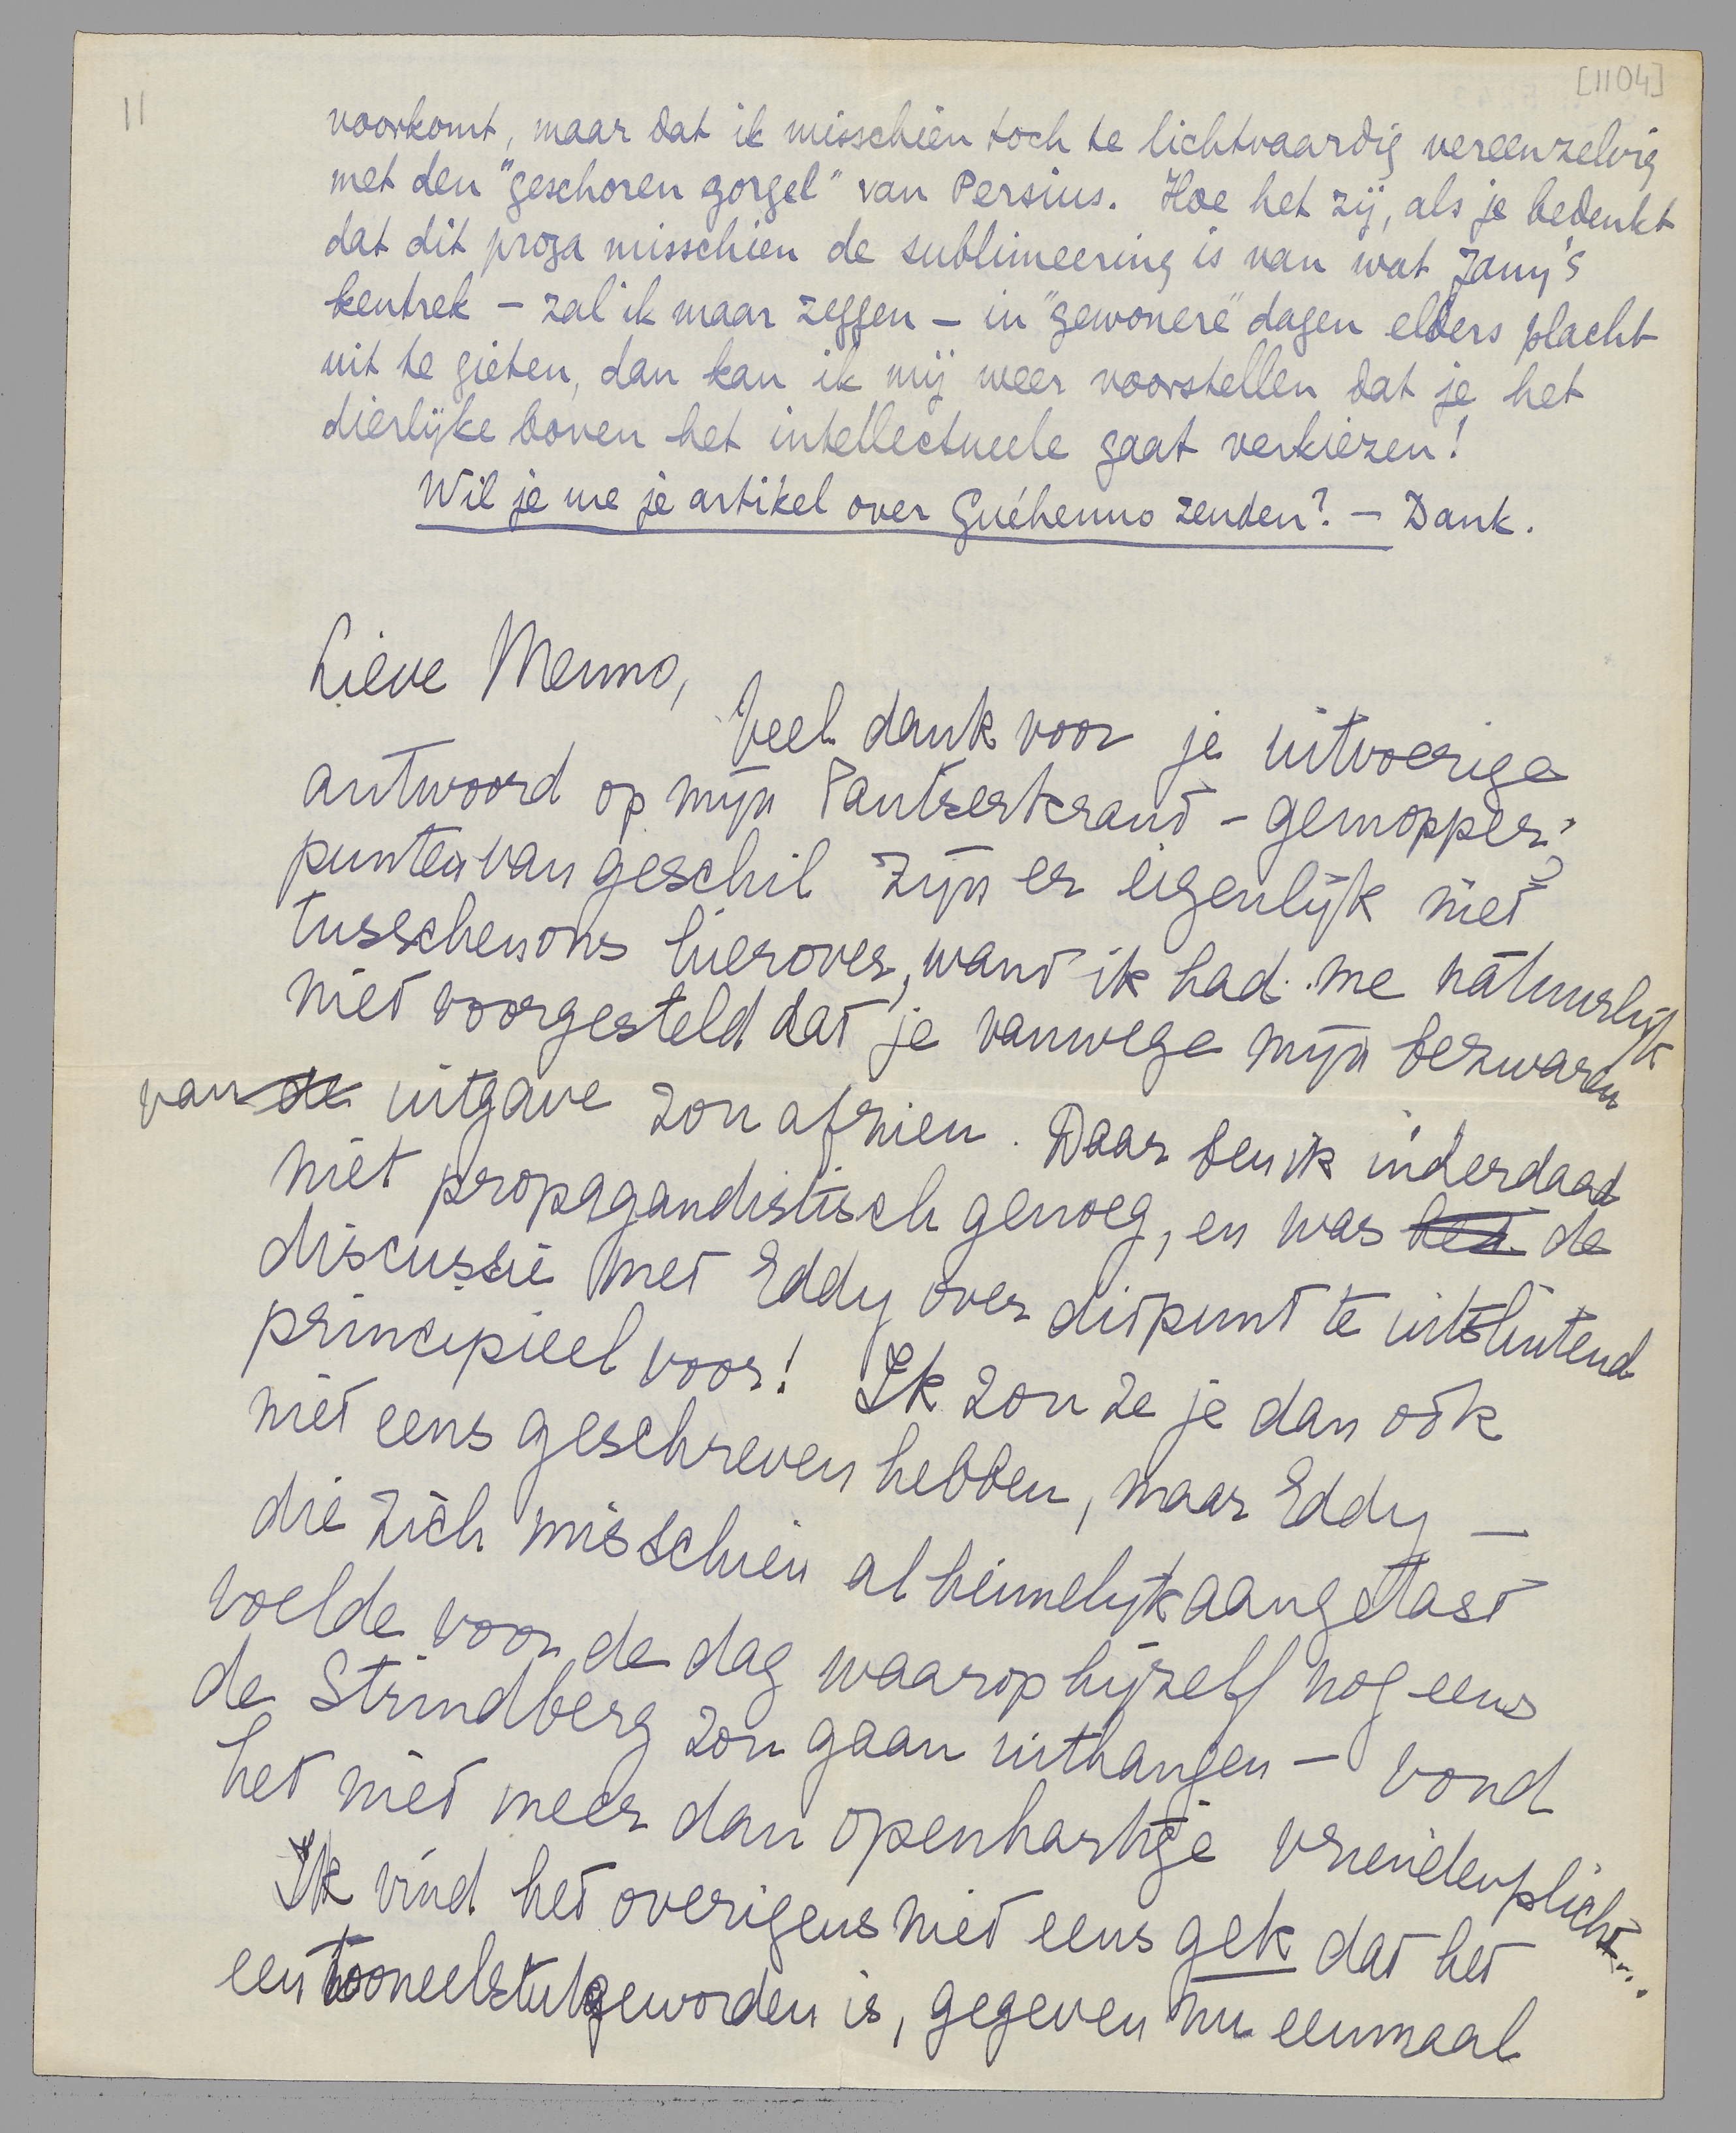 [1104]
11
voorkomt, maar dat ik misschien toch te lichtvaardig vereenzelvig
met den "geschoren gorgel" van Persius. Hoe het zij, als je bedenkt
dat dit proza misschien de sublimeering is van wat Jany's
kentrek - zal ik maar zeggen - in "gewonere" dagen elders placht
uit te gieten, dan kan ik mij weer voorstellen dat je het
dierlijke boven het intellectueele gaat verkiezen!
Wil je me je artikel over Guéhenno zenden? - Dank.
Lieve Menno,
Veel dank voor je uitvoerige
antwoord op mijn Pantserkrant-gemopper;
punten van geschil zijn er eigenlijk niet
tusschen ons hierover, want ik had me natuurlijk
niet voorgesteld dat je vanwege mijn bezwaren
van de uitgave zou afzien. Daar ben ik inderdaad
niet propagandistisch genoeg, en was het de
discussie met Eddy over dit punt te uitsluitend
principieel voor! Ik zou ze je dan ook
niet eens geschreven hebben, maar Eddy -
die zich misschien al heimelijk aangetast
voelde voor de dag waarop hijzelf nog eens
de Strindberg zou gaan uithangen - vond
het niet meer dan openhartige vriendenplicht...
Ik vind het overigens niet eens gek dat het
een tooneelstuk geworden is, gegeven nu eenmaal